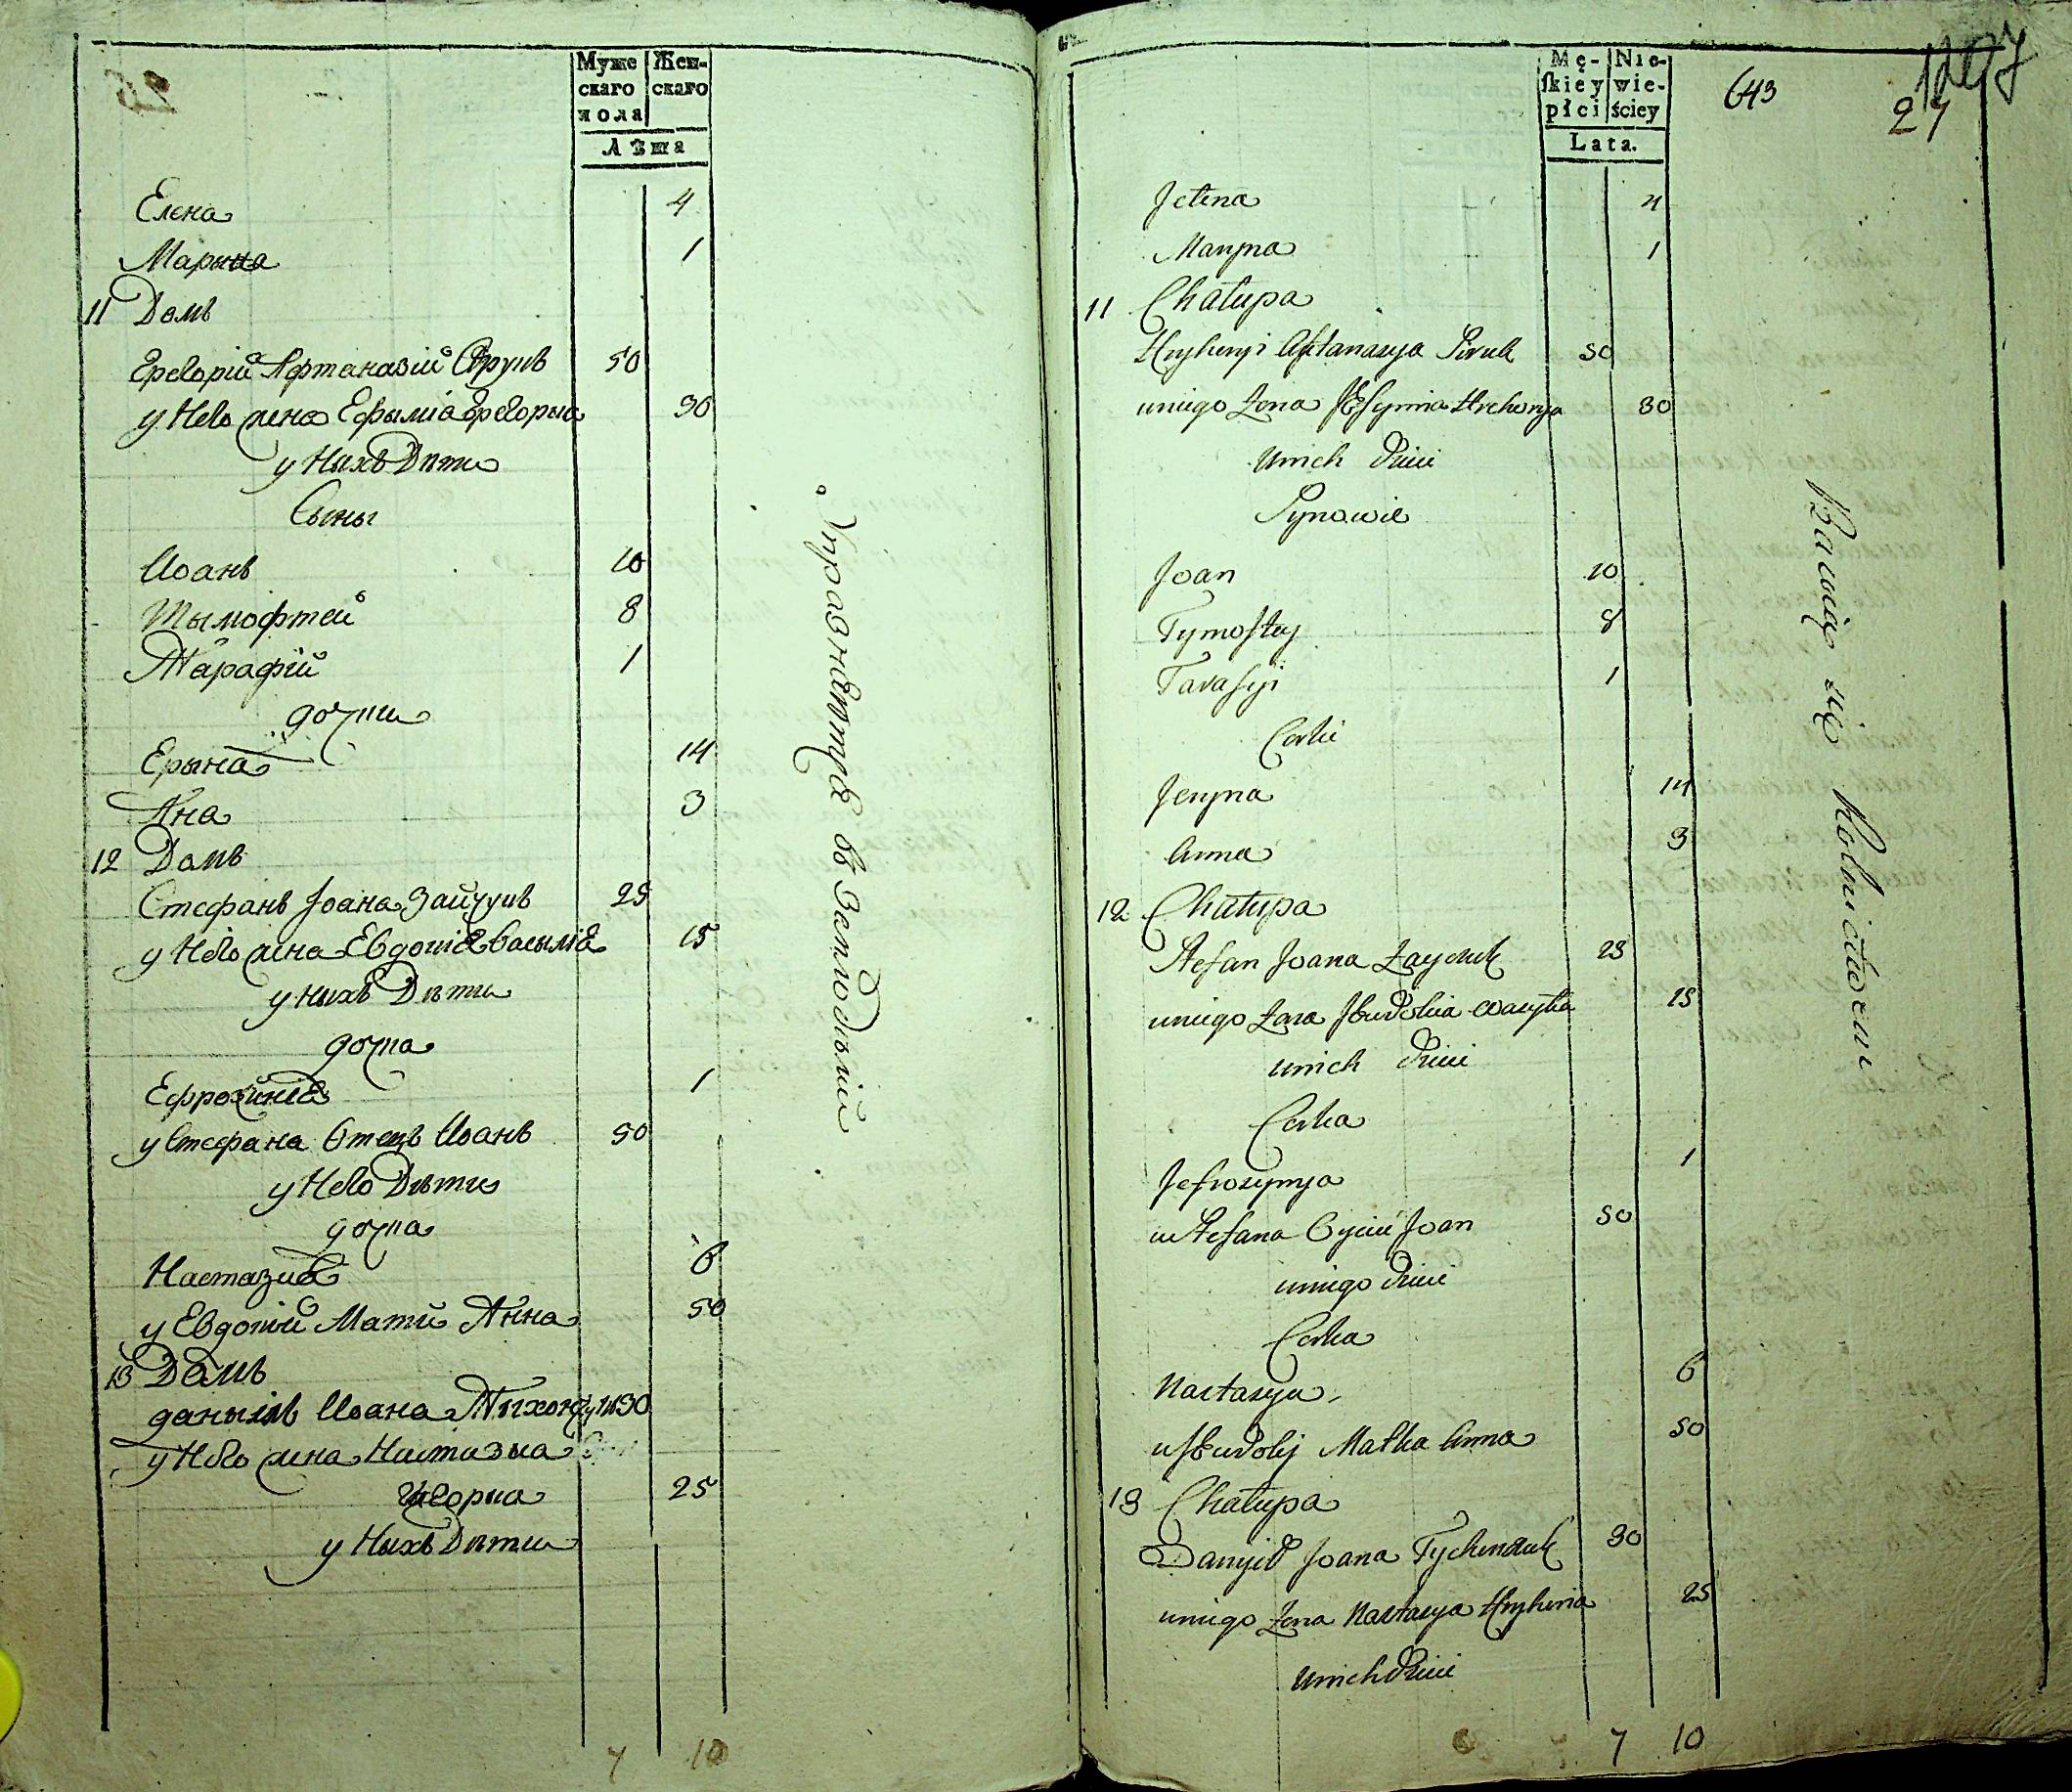 26
Муже
скаго
пола
Жен-
скаго
Лѣта
Елена 4
Марына 1
11 Домъ
Грегорій Афтаназій Струкъ 50
у Него жена Ефыміа Грегорыа 30
у Ныхъ Дѣти
Сыны
Иоанъ 10
Тымофтей 8
Тарафій 1
дочки
Ерына 14
Ана 3
12 Домъ
Стефанъ Јоана Зайчукъ 25
у Него жена Евдокіа Василіа 15
у Ныхъ Дѣти
дочка
Ефрозиніа 1
у Стефана Отецъ Иоанъ 50
у Него Дѣти
дочка
Настазиа 6
у Евдокій Мати Анна 50
13 Домъ
данылъ Иоана Тыхончукъ 30
у Него жена Настазыа
Григорыа 25
у Ныхъ Дѣти
7 10
Упражнаютъся въ Земледѣлій
Mę-
skiey
płci
Nie-
wie-
ściey
Lata.
643
27
Jelena 4
Maryna 1
11 Chałupa
Hryhoryi Aftanasya Struk 50
uniego Żona JEfymia Hrehorya 30
unich dzieci
Synowie
Joan 10
Tymoftey 8
Tarafyi 1
Corki
Jeryna 14
Anna 3
12 Chałupa
Stefan Joana Zayczuk 25
uniego Żona JEwdokia Wasyla 15
unich dzieci
Corka
Jefrozynya 1
u Stefana Oyciec Joan 50
uniego dzieci
Corka
Nastasya 6
u JEwdokij Matka Anna 50
13 Chałupa
Danyił Joana Tychonczuk 30
uniego Żona Nastasya Hryhoria 25
unich dzieci
7 10
Bawią się Rolnictwem